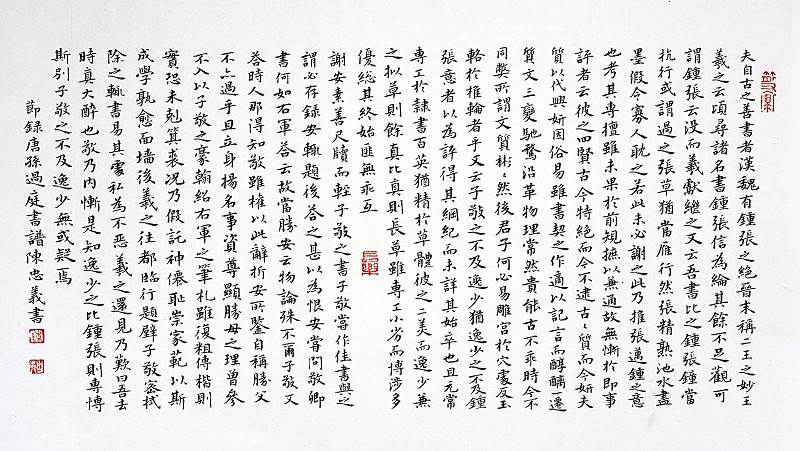 夫自古之善書者漢魏有鍾張之絕晉末稱二王之妙王
羲之云頃尋諸名書鍾張信為綸其餘不足觀可
謂鍾張云沒而羲獻繼之又云吾書比之鍾張鍾當
抗行或謂過之張草猶當雁行然張精熟池水盡
墨假令寡人耽之若此未必謝之此乃推張邁鍾之意
也考其專擅雖未果於前規摭以兼通故無慚於即事
評者云彼之四賢古今特絕而今不逮古〻質而今妍夫
質以代興妍因俗易雖書契之作適以記言而醇醨一遷
質文三變馳鶩沿革物理常然貴能古不乖時今不
同弊所謂文質彬〻然後君子何必易雕宮於穴處反玉
輅於椎輪者乎又云子敬之不及逸少猶逸少之不及鍾
張意者以為評得其綱紀而未詳其始卒也且元常
專工於隸書百英猶精於草體彼之二美而逸少兼
之擬草則餘真比真則長草雖專工小劣而博涉多
優總其終始匪無乖互
謝安素善尺牘而輕子敬之書子敬嘗作佳書與之
謂必存錄安輒題後答之甚以為恨安嘗問敬卿
書何如右軍答云故當勝安云物論殊不爾子敬又
答時人那得知敬雖權以此辭折安所鑒自稱勝父
不亦過乎且立身揚名事資尊顯勝母之理曾參
不入以子敬之豪翰紹右軍之筆札雖復粗傳楷則
實恐未剋箕裘況乃假託神僊恥崇家範以斯
成學孰愈面墻後羲之往都臨行題壁子敬密拭
除之輒書易其處私為不惡羲之還見乃歎曰吾去
時真大醉也敬乃內慚是知逸少之比鍾張則專博
斯別子敬之不及逸少無或疑焉
節錄唐孫過庭書譜陳忠義書